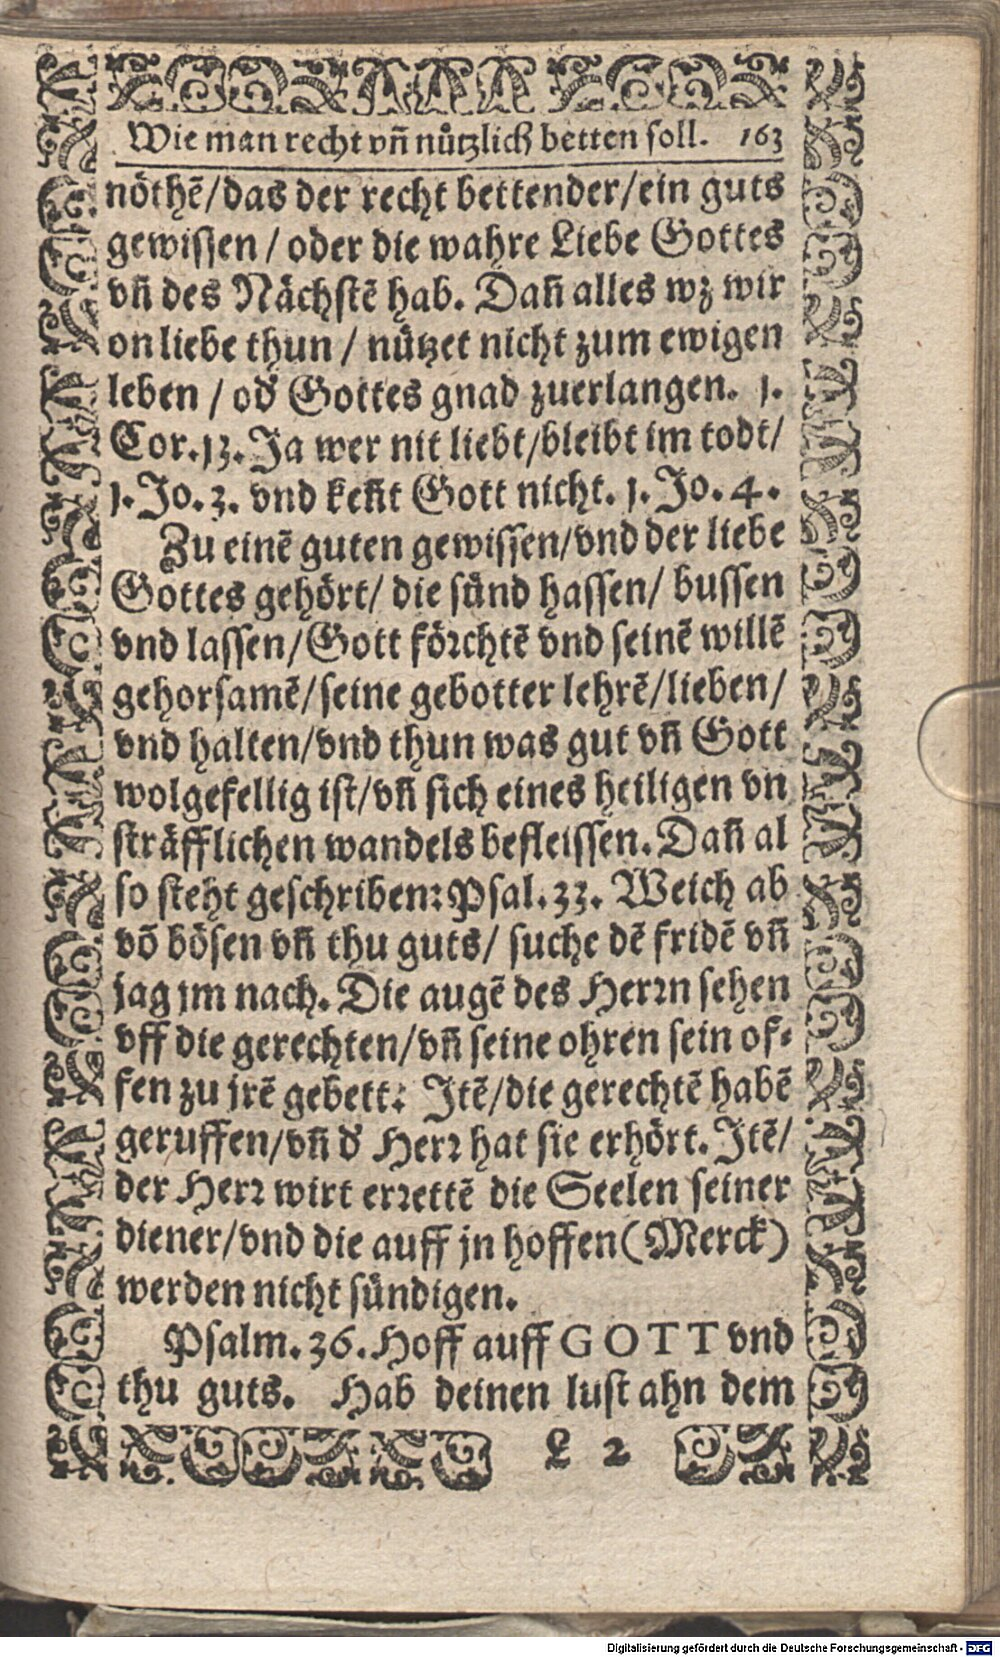 Wie man recht vñ nützlich betten soll. 163
nöthē/das der recht bettender/ein guts
gewissen / oder die wahre Liebe Gottes
vñ des Nächstē hab. Dañ alles wz wir
on liebe thun / nützet nicht zum ewigen
leben / od' Gottes gnad zuerlangen. 1.
Cor.13. Ja wer nit liebt/bleibt im todt/
1. Jo. 3. vnd keñt Gott nicht. 1. Jo. 4.
Zu einē guten gewissen/vnd der liebe
Gottes gehört/ die sünd hassen/ bussen
vnd lassen/Gott förchtē vnd seinē willē
gehorsamē/seine gebotter lehrē/lieben/
vnd halten/vnd thun was gut vñ Gott
wolgefellig ist/vñ sich eines heiligen vn
sträfflichen wandels befleissen. Dañ al
so steht geschriben: Psal. 33. Weich ab
vō bösen vñ thu guts/ suche dē fridē vñ
jag jm nach. Die augē des Herrn sehen
vff die gerechten/vñ seine ohren sein of-
fen zu jrē gebett: Itē/die gerechtē habē
geruffen/vñ d' Herr hat sie erhört. Itē/
der Herr wirt errettē die Seelen seiner
diener/vnd die auff jn hoffen (Merck)
werden nicht sündigen.
Psalm. 36. Hoff auff GOTT vnd
thu guts. Hab deinen lust ahn dem
L 2
Digitalisierung gefördert durch die Deutsche Forschungsgemeinschaft - DFG